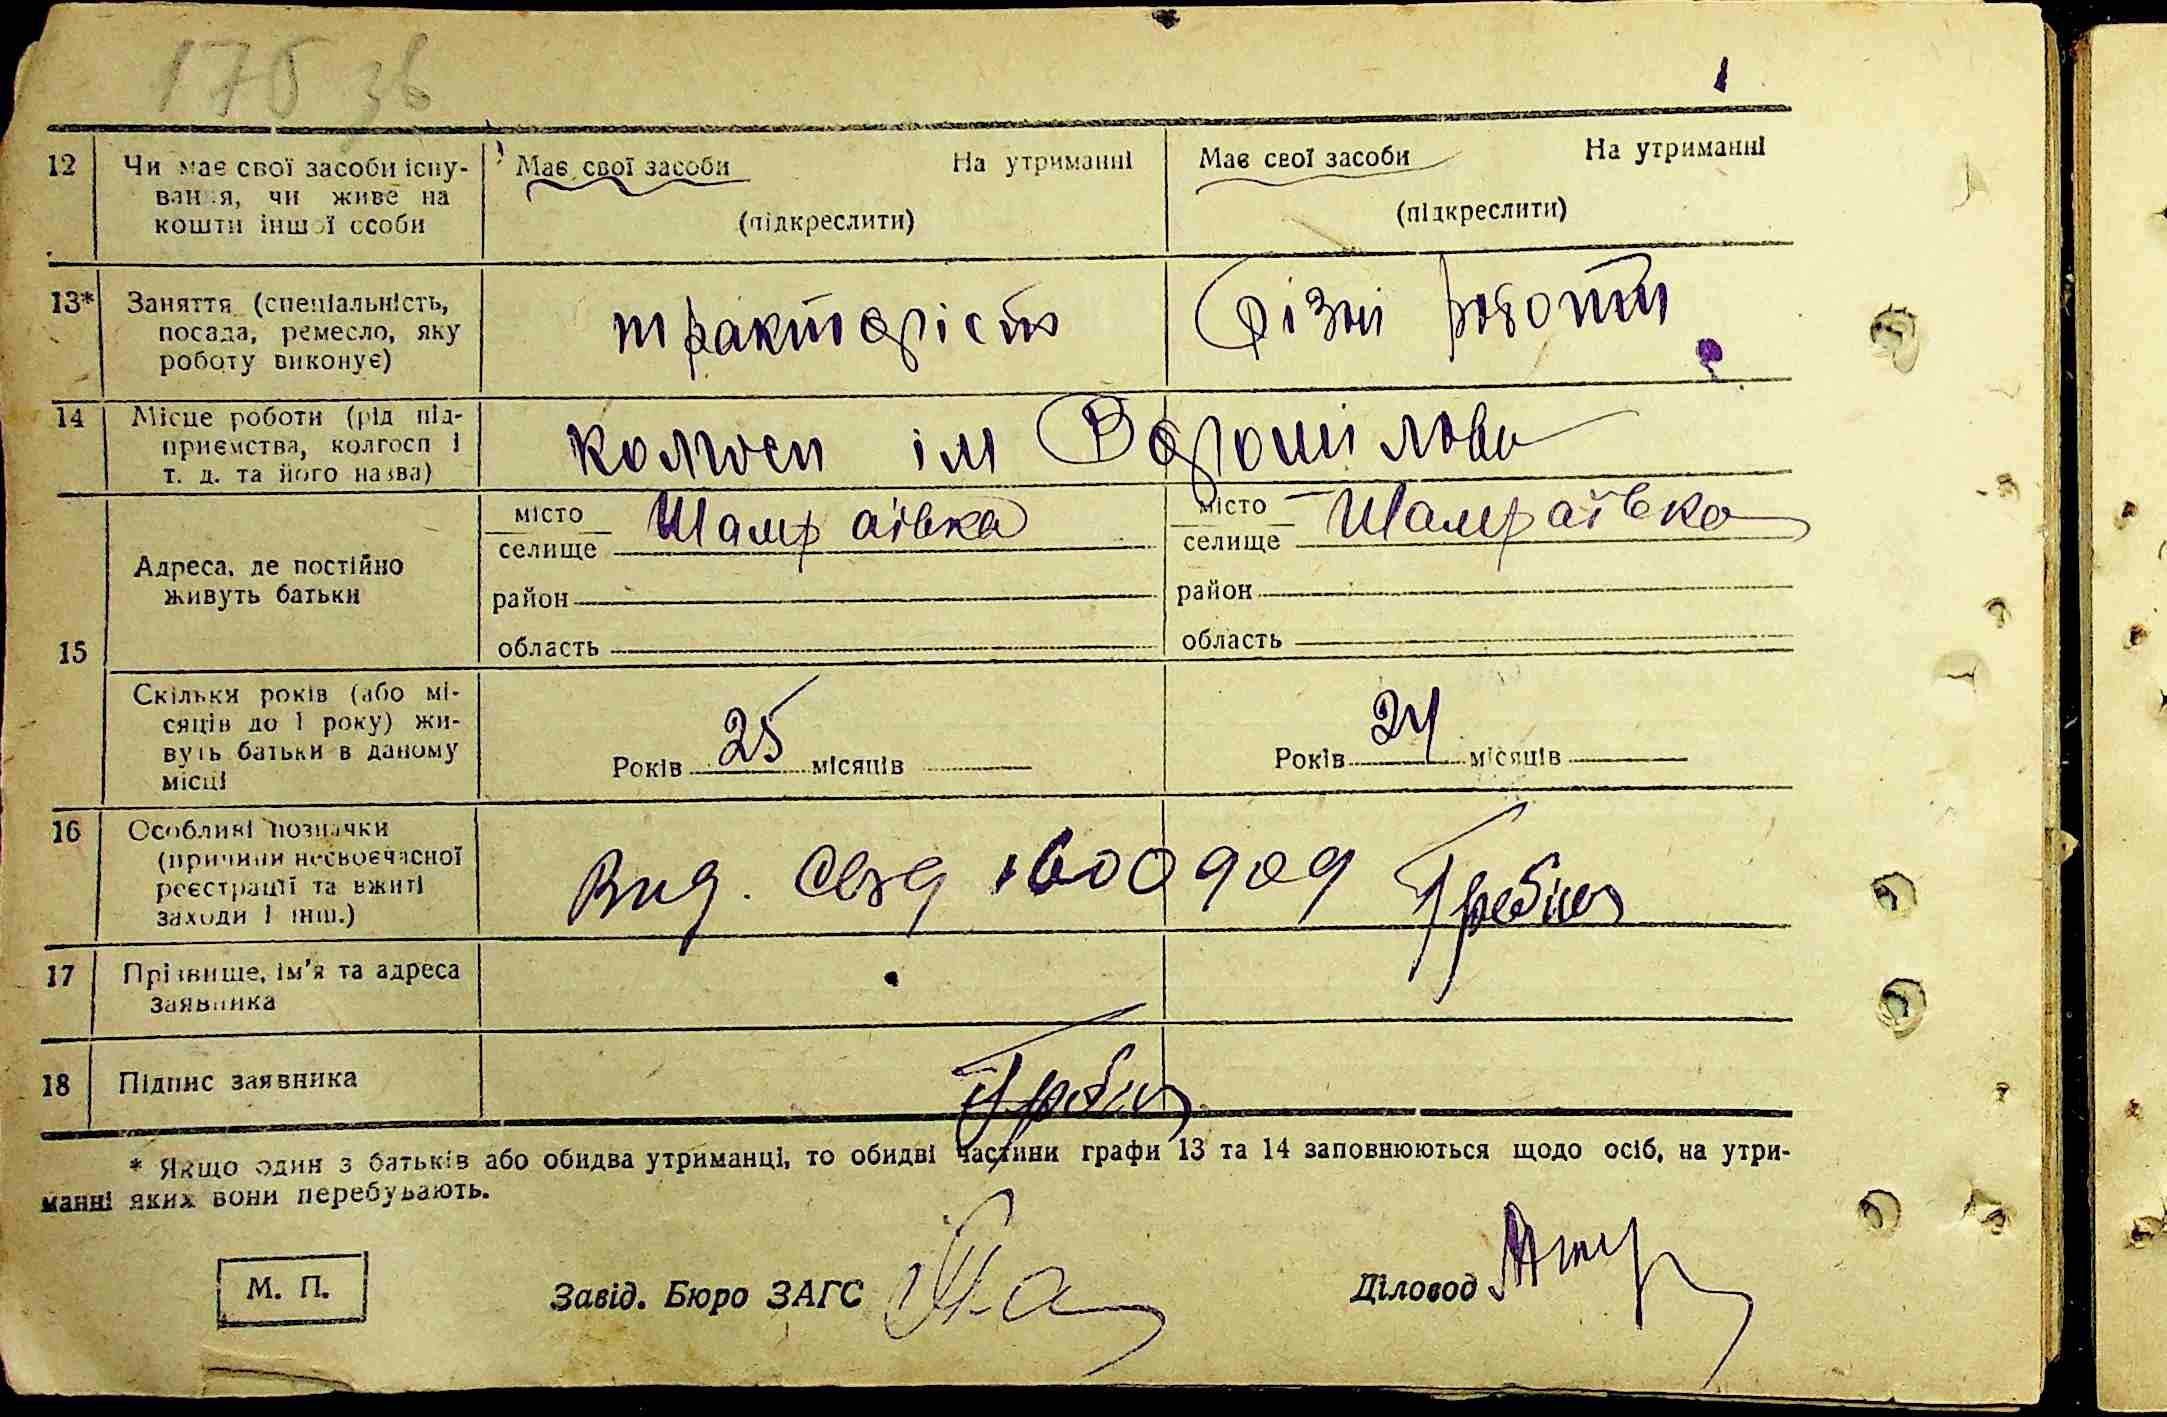 175 зв
12 Чи має свої засоби існу-
вання, чи живе на
кошти іншої особи
Має свої засоби На утриманні
(підкреслити)
Має свої засоби На утриманні
(підкреслити)
13* Заняття (спеціальність,
посада, ремесло, яку
роботу виконує)
тракторіст
різні роботи
14 Місце роботи (рід під-
приємства, колгосп і
т. д. та його назва)
колгосп ім Ворошилова
15 Адреса, де постійно
живуть батьки
місто
селище Шамраївка
район
область
місто
селище Шамраївка
район
область
Скільки років (або мі-
сяців до 1 року) жи-
вуть батьки в даному
місці
Років 25 місяців
Років 24 місяців
16 Особливі позначки
(причини несвоєчасної
реєстрації та вжиті
заходи і інш.)
Вид. Свід 600909
17 Прізвище, ім'я та адреса
заявника
18 Підпис заявника
* Якщо один з батьків або обидва утриманці, то обидві частини графи 13 та 14 заповнюються щодо осіб, на утри-
манні яких вони перебувають.
М. П.
Завід. Бюро ЗАГС
Діловод